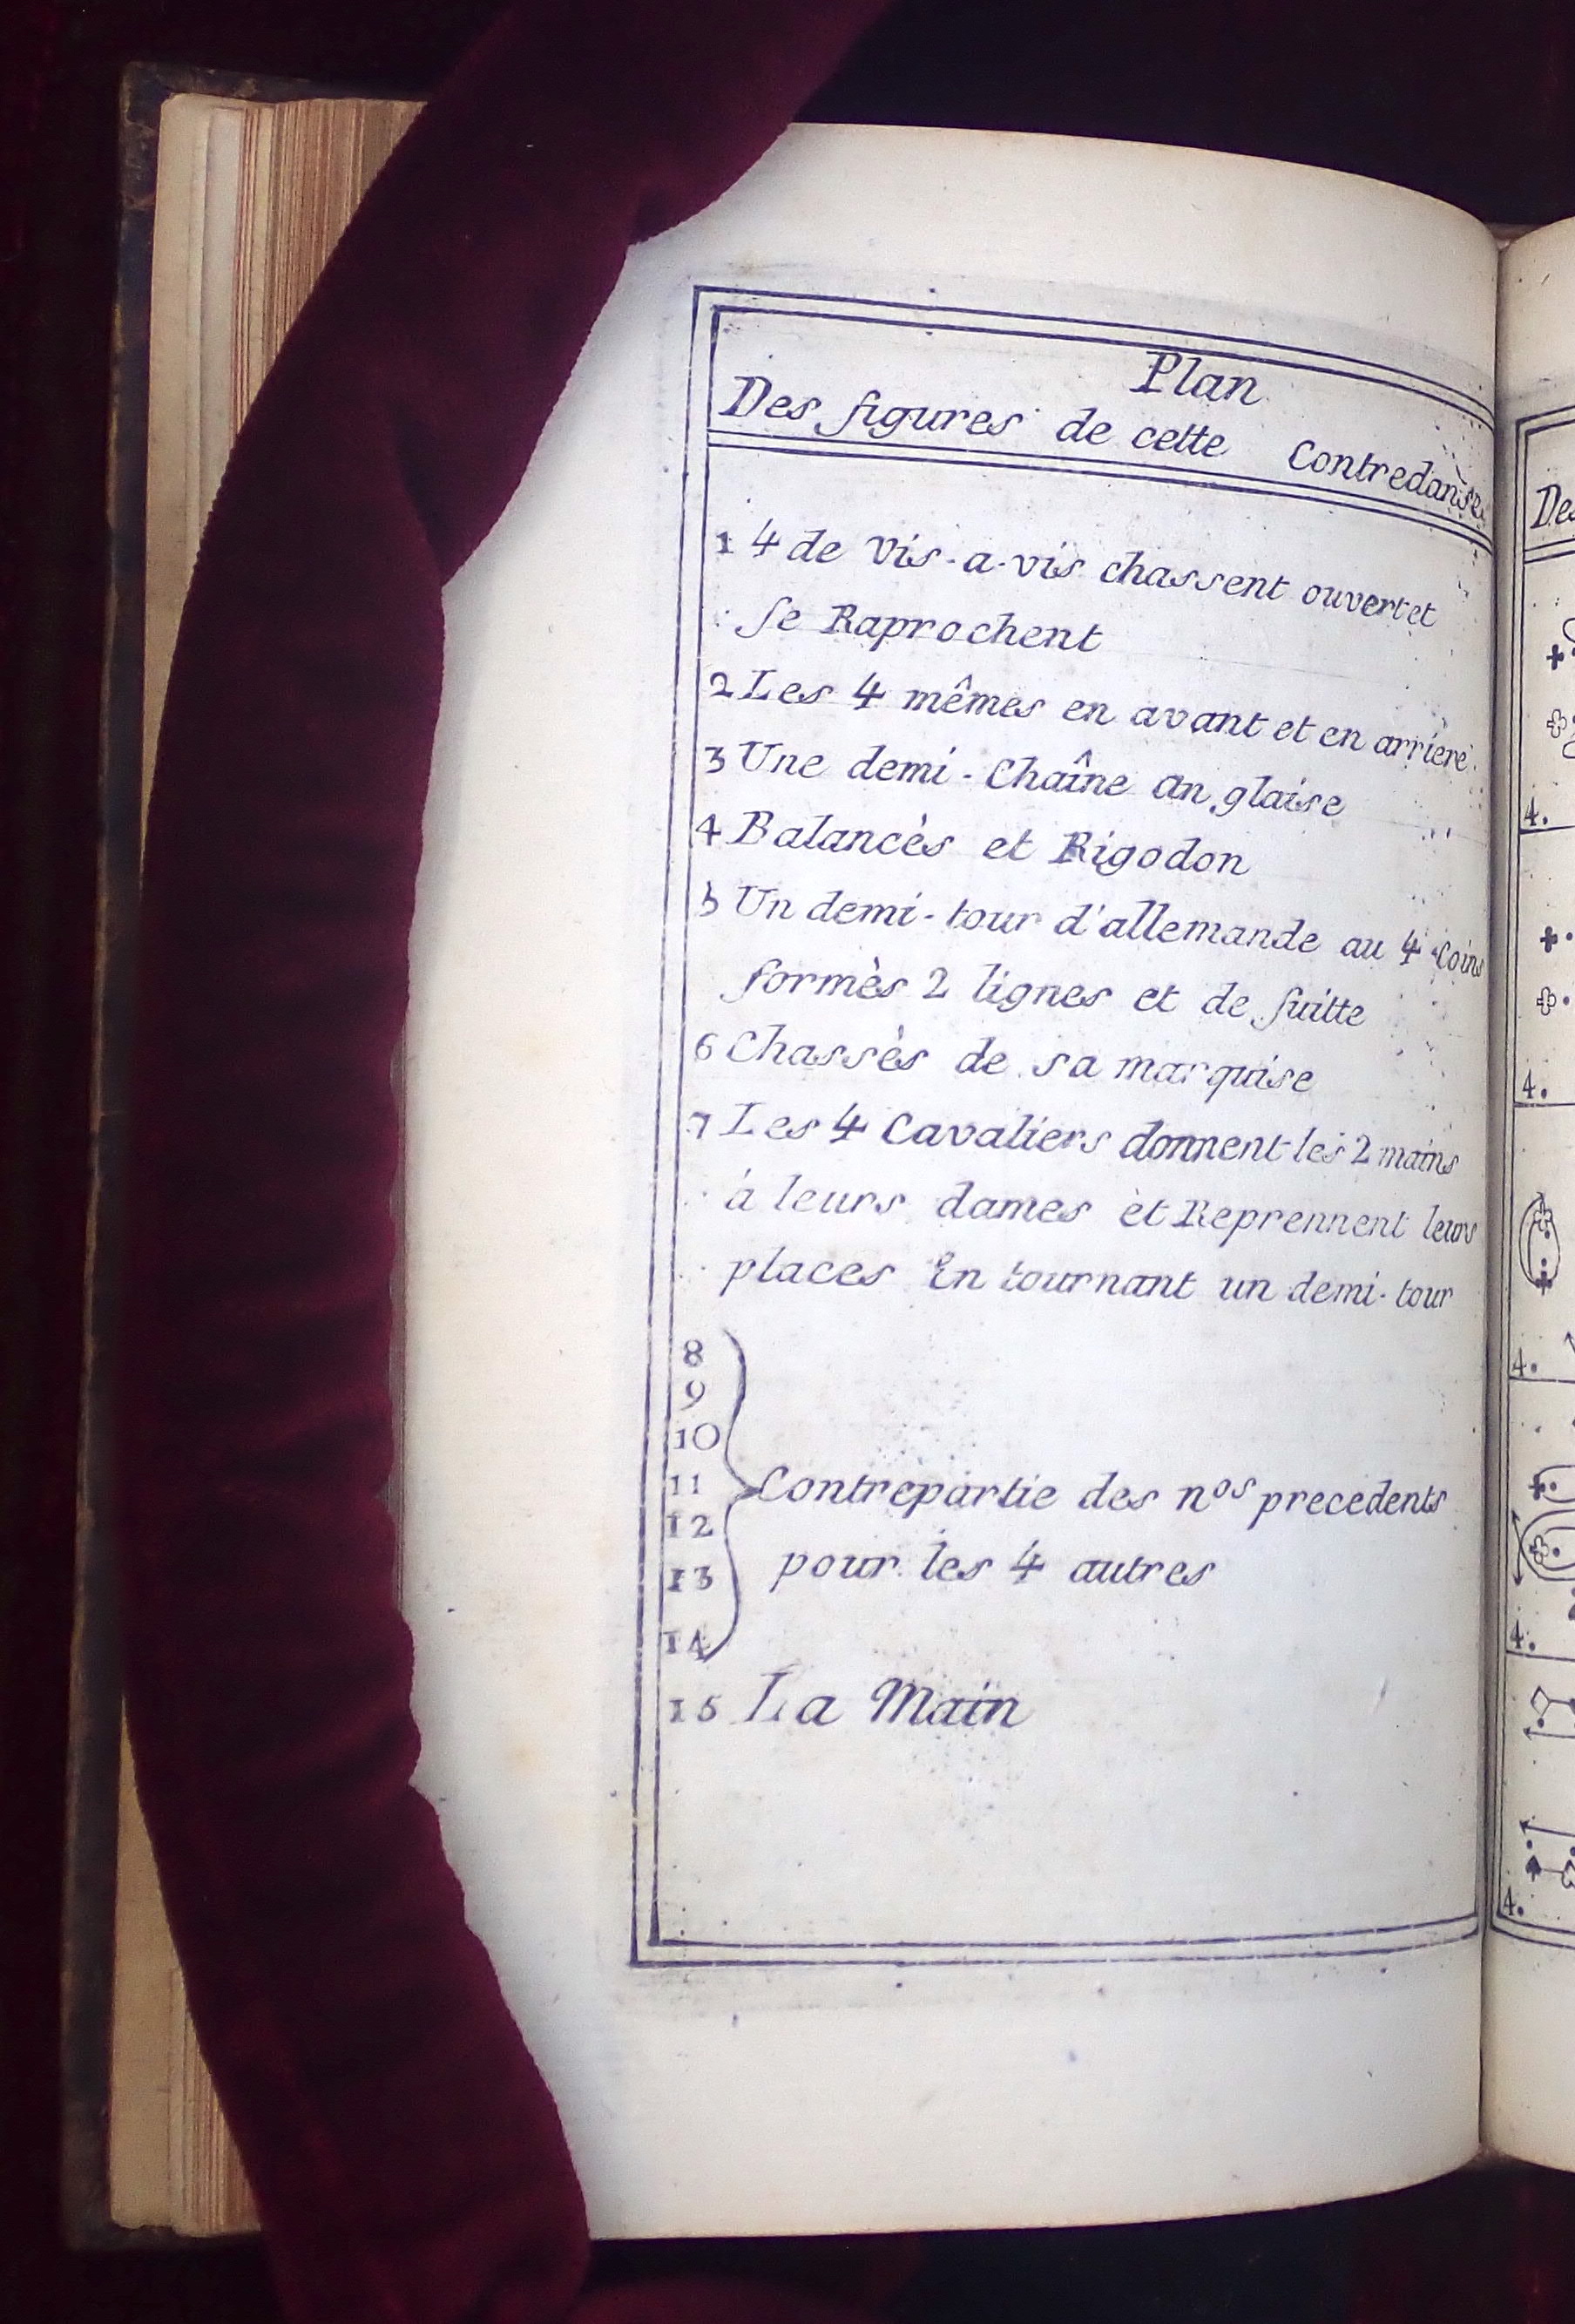 Plan
Des figures de cette Contredanse
1 4 de vis-a-vis chassent ouvert et
se Raprochent
2 Les 4 mêmes en avant et en arriere
3 Une demi-Chaîne anglaise
4 Balancès et Rigodon
5 Un demi-tour d'allemande au 4 Coins
formès 2 lignes et de suitte
6 Chassès de sa marquise
7 Les 4 Cavaliers donnent les 2 mains
à leurs dames et Reprennent leurs
places En tournant un demi-tour
8
9
10
11 Contrepartie des nos precedents
12
13 pour les 4 autres
14
15 La Main
De
4.
4.
4.
4.
4.